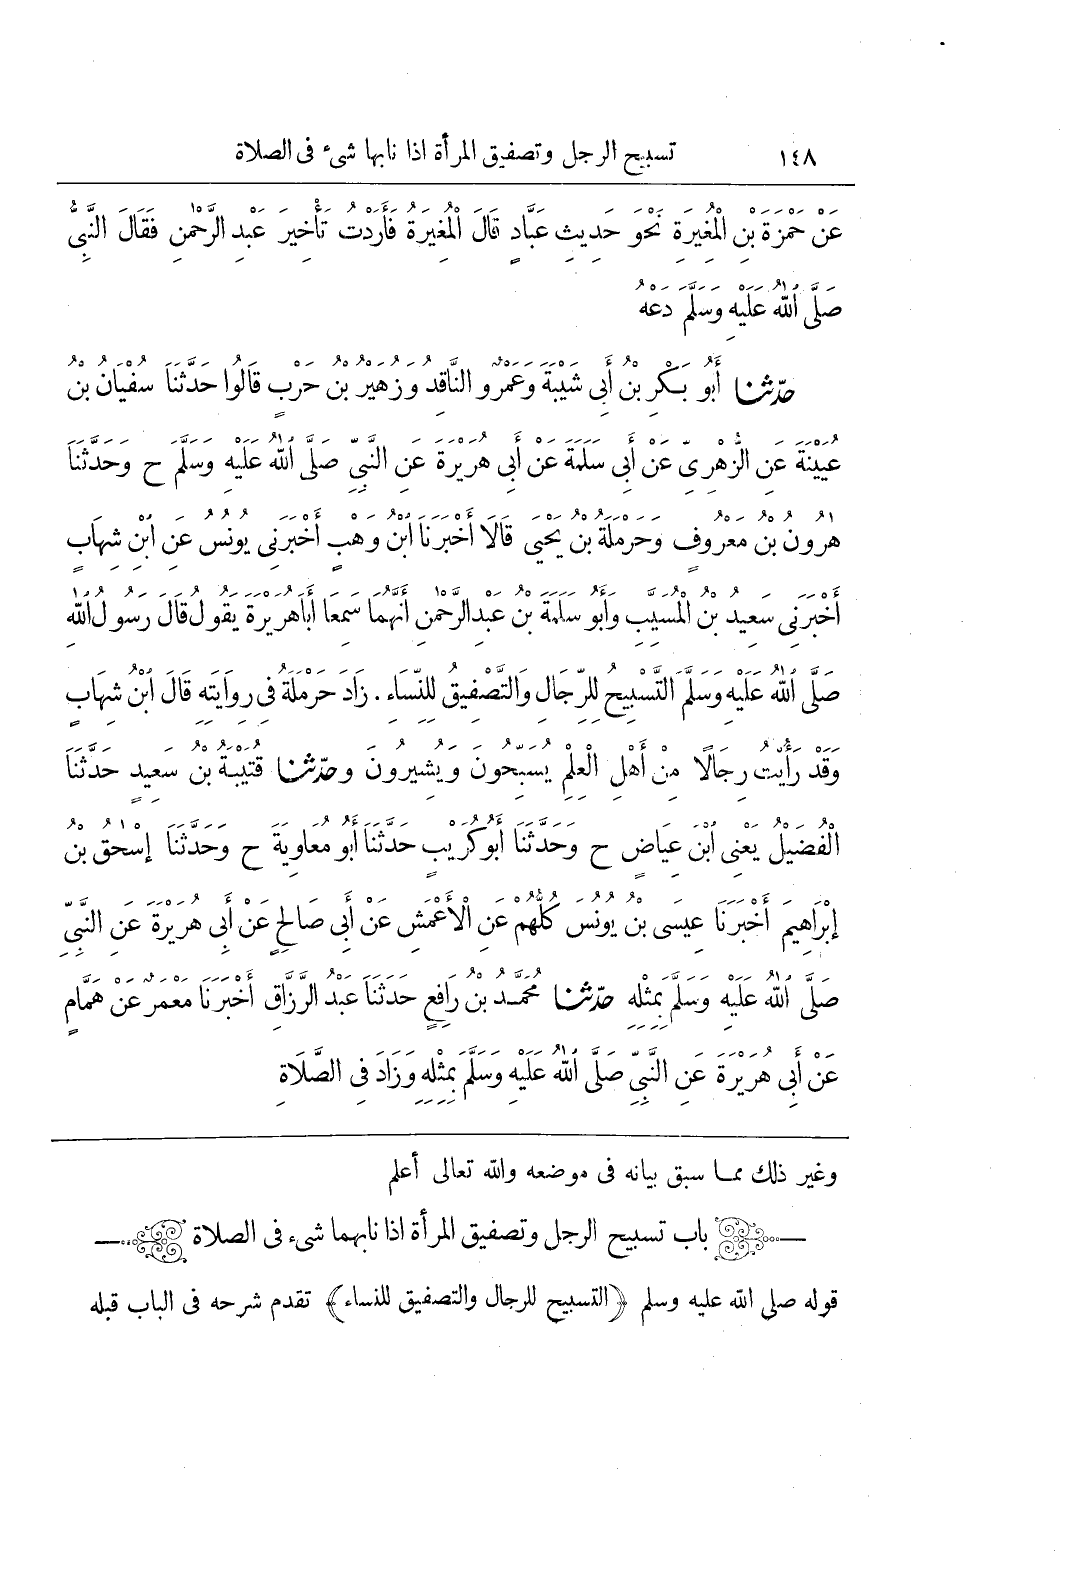 ١٤٨ تسبيح الرجل وتصفيق المرأة اذا نابها شىء فى الصلاة
عَنْ حَمْزَةَ بْنِ الْمُغِيرَةِ نَحْوَ حَدِيثِ عَبَّادٍ قَالَ الْمُغِيرَةُ فَأَرَدْتُ تَأْخِيرَ عَبْدِ الرَّحْمٰنِ فَقَالَ النَّبِىُّ
صَلَّى اللّٰهُ عَلَيْهِ وَسَلَّمَ دَعْهُ
حدّثنا أَبُو بَكْرِ بْنُ أَبِى شَيْبَةَ وَعَمْرٌو النَّاقِدُ وَزُهَيْرُ بْنُ حَرْبٍ قَالُوا حَدَّثَنَا سُفْيَانُ بْنُ
عُيَيْنَةَ عَنِ الزُّهْرِىِّ عَنْ أَبِى سَلَمَةَ عَنْ أَبِى هُرَيْرَةَ عَنِ النَّبِىِّ صَلَّى اللّٰهُ عَلَيْهِ وَسَلَّمَ ح وَحَدَّثَنَا
هٰرُونُ بْنُ مَعْرُوفٍ وَحَرْمَلَةُ بْنُ يَحْيَى قَالَا أَخْبَرَنَا ابْنُ وَهْبٍ أَخْبَرَنِى يُونُسُ عَنِ ابْنِ شِهَابٍ
أَخْبَرَنِى سَعِيدُ بْنُ الْمُسَيِّبِ وَأَبُو سَلَمَةَ بْنُ عَبْدِ الرَّحْمٰنِ أَنَّهُمَا سَمِعَا أَبَا هُرَيْرَةَ يَقُولُ قَالَ رَسُولُ اللّٰهِ
صَلَّى اللّٰهُ عَلَيْهِ وَسَلَّمَ التَّسْبِيحُ لِلرِّجَالِ وَالتَّصْفِيقُ لِلنِّسَاءِ . زَادَ حَرْمَلَةُ فِى رِوَايَتِهِ قَالَ ابْنُ شِهَابٍ
وَقَدْ رَأَيْتُ رِجَالًا مِنْ أَهْلِ الْعِلْمِ يُسَبِّحُونَ وَيُشِيرُونَ وحدّثنا قُتَيْبَةُ بْنُ سَعِيدٍ حَدَّثَنَا
الْفُضَيْلُ يَعْنِى ابْنَ عِيَاضٍ ح وَحَدَّثَنَا أَبُو كُرَيْبٍ حَدَّثَنَا أَبُو مُعَاوِيَةَ ح وَحَدَّثَنَا إِسْحٰقُ بْنُ
إِبْرَاهِيمَ أَخْبَرَنَا عِيسَى بْنُ يُونُسَ كُلُّهُمْ عَنِ الْأَعْمَشِ عَنْ أَبِى صَالِحٍ عَنْ أَبِى هُرَيْرَةَ عَنِ النَّبِىِّ
صَلَّى اللّٰهُ عَلَيْهِ وَسَلَّمَ بِمِثْلِهِ حدّثنا مُحَمَّدُ بْنُ رَافِعٍ حَدَّثَنَا عَبْدُ الرَّزَّاقِ أَخْبَرَنَا مَعْمَرٌ عَنْ هَمَّامٍ
عَنْ أَبِى هُرَيْرَةَ عَنِ النَّبِىِّ صَلَّى اللّٰهُ عَلَيْهِ وَسَلَّمَ بِمِثْلِهِ وَزَادَ فِى الصَّلَاةِ
وغير ذلك مما سبق بيانه فى موضعه والله تعالى أعلم
باب تسبيح الرجل وتصفيق المرأة اذا نابهما شىء فى الصلاة
قوله صلى الله عليه وسلم ﴿التسبيح للرجال والتصفيق للنساء﴾ تقدم شرحه فى الباب قبله